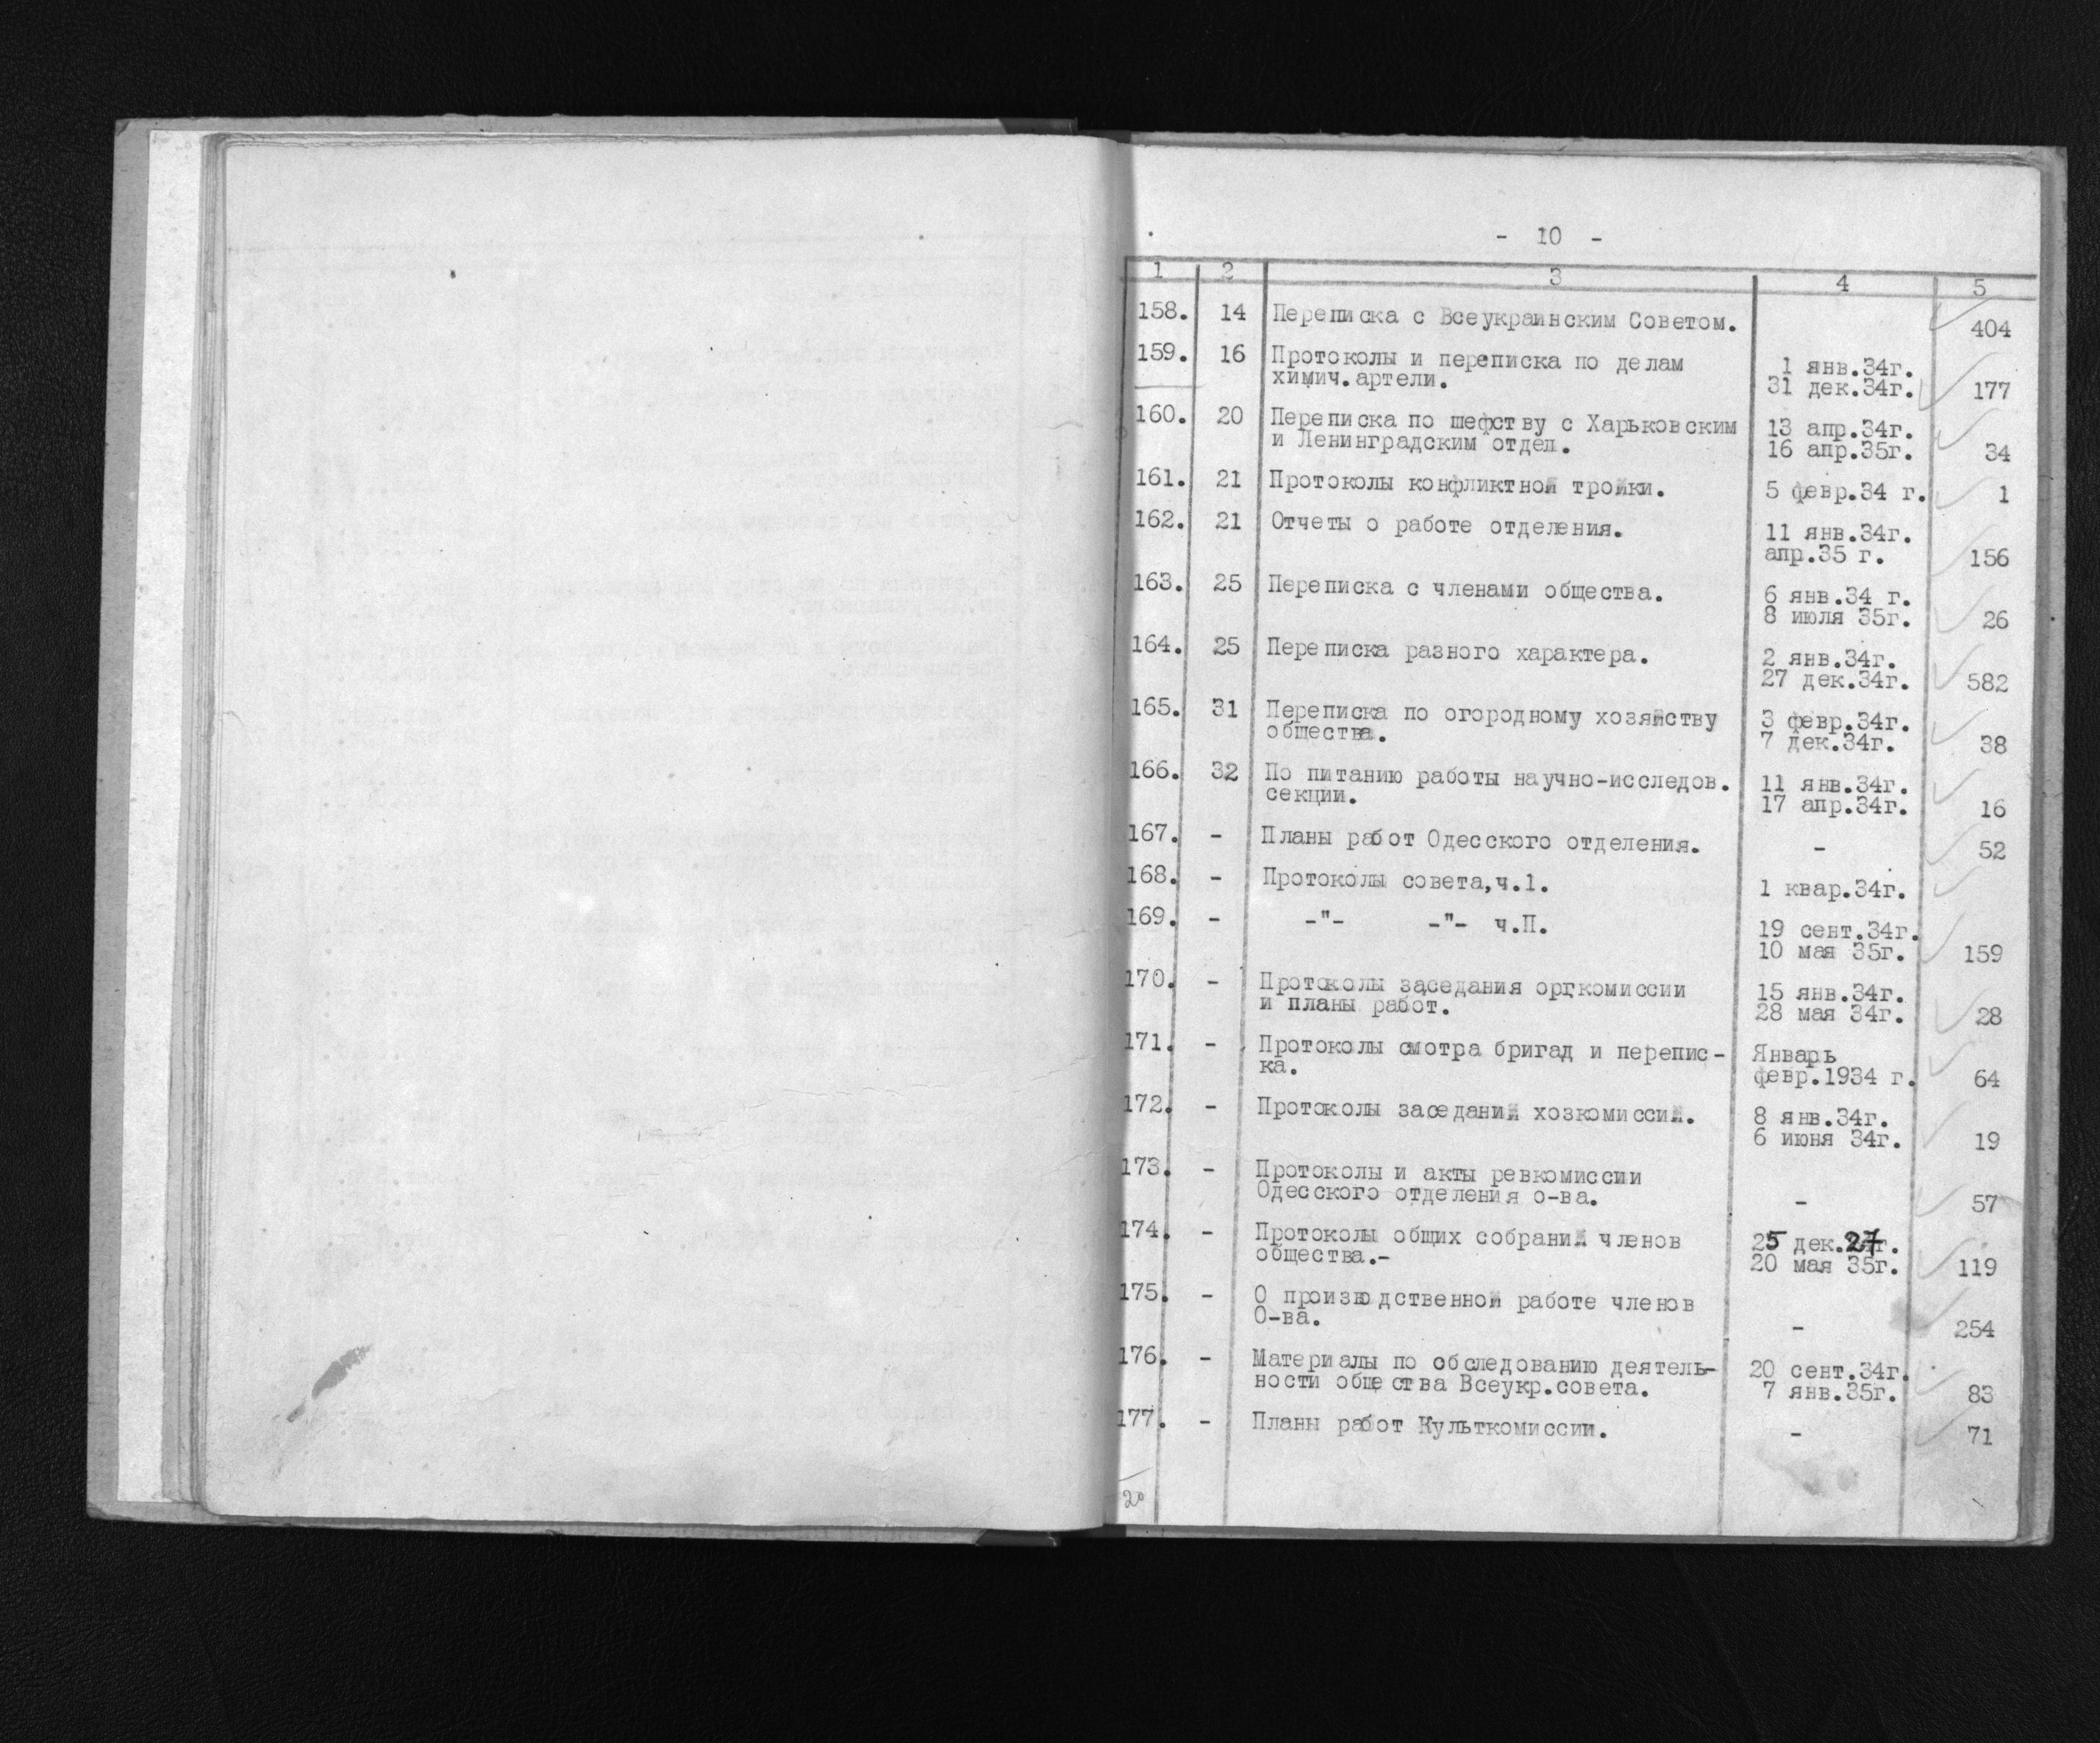 - 10 -
1 2 3 4 5
158. 14 Переписка с Всеукраинским Советом. 404
159. 16 Протоколы и переписка по делам 1 янв.34г.
химич.артели. 31 дек.34г. 177
160. 20 Переписка по шефству с Харьковским 13 апр.34г.
и Ленинградским отдел. 16 апр.35г. 34
161. 21 Протоколы конфликтной тройки. 5 февр.34 г. 1
162. 21 Отчеты о работе отделения. 11 янв.34г.
апр.35 г. 156
163. 25 Переписка с членами общества. 6 янв.34 г.
8 июля 35г. 26
164. 25 Переписка разного характера. 2 янв.34г.
27 дек.34г. 582
165. 31 Переписка по огородному хозяйству 3 февр.34г.
общества. 7 дек.34г. 38
166. 32 По питанию работы научно-исследов. 11 янв.34г.
секции. 17 апр.34г. 16
167. - Планы работ Одесского отделения. - 52
168. - Протоколы совета,ч.1. 1 квар.34г.
169. - -"- -"- ч.П. 19 сент.34г.
10 мая 35г. 159
170. - Протоколы заседания оргкомиссии 15 янв.34г.
и планы работ. 28 мая 34г. 28
171. - Протоколы смотра бригад и перепис- Январь
ка. февр.1934 г. 64
172. - Протоколы заседаний хозкомиссии. 8 янв.34г.
6 июня 34г. 19
173. - Протоколы и акты ревкомиссии
Одесского отделения о-ва. - 57
174. - Протоколы общих собраний членов 25 дек.27г.
общества.- 20 мая 35г. 119
175. - О производственной работе членов
О-ва. - 254
176. - Материалы по обследованию деятель- 20 сент.34г.
ности общества Всеукр.совета. 7 янв.35г. 83
177. - Планы работ Культкомиссии. - 71
20